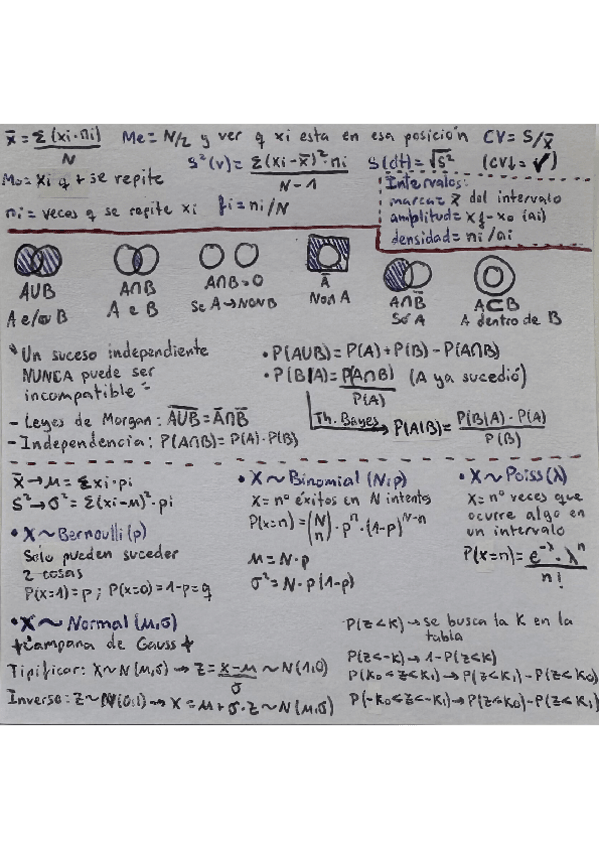 x̄ = Σ(xi·ni)/N   Me = N/2 y ver q xi esta en esa posición   CV = S/x̄
Mo = xi q + se repite   S²(v) = Σ(xi-x̄)²·ni/N-1   S(dt) = √S²   (CV↓ = ✓)
ni = veces q se repite xi   fi = ni/N
Intervalos:
marca = x̄ del intervalo
amplitud = xf - xo (ai)
densidad = ni/ai
AUB
A e/o B
A∩B
A e B
A∩B = 0
Se A → NON B
Ā
Non A
A∩B̄
Só A
A⊂B
A dentro de B
* Un suceso independiente
NUNCA puede ser
incompatible
- Leyes de Morgan: A̅U̅B̅ = Ā∩B̄
- Independencia: P(A∩B) = P(A)·P(B)
• P(AUB) = P(A) + P(B) - P(A∩B)
• P(B|A) = P(A∩B)/P(A)   (A ya sucedió)
Th. Bayes → P(A|B) = P(B|A)·P(A)/P(B)
x̄ → μ = Σxi·pi
S² → σ² = Σ(xi-μ)²·pi
• X ~ Bernoulli (p)
Solo pueden suceder
2 cosas
P(x=1) = p ; P(x=0) = 1-p = q
• X ~ Binomial (N,p)
X = nº éxitos en N intentos
P(x=n) = (N n)·pⁿ·(1-p)ᴺ⁻ⁿ
μ = N·p
σ² = N·p(1-p)
• X ~ Poiss(λ)
X = nº veces que
ocurre algo en
un intervalo
P(x=n) = e^-λ · λⁿ/n!
• X ~ Normal (μ,σ)
+Campana de Gauss+
Tipificar: X~N(μ,σ) → Z = x-μ/σ ~ N(1,0)
Inverso: Z~N(0,1) → X = μ+σ·Z ~ N(μ,σ)
P(Z<K) → se busca la K en la
tabla
P(Z<-K) → 1-P(Z<K)
P(K0<Z<K1) → P(Z<K1) - P(Z<K0)
P(-K0<Z<-K1) → P(Z<K0) - P(Z<K1)